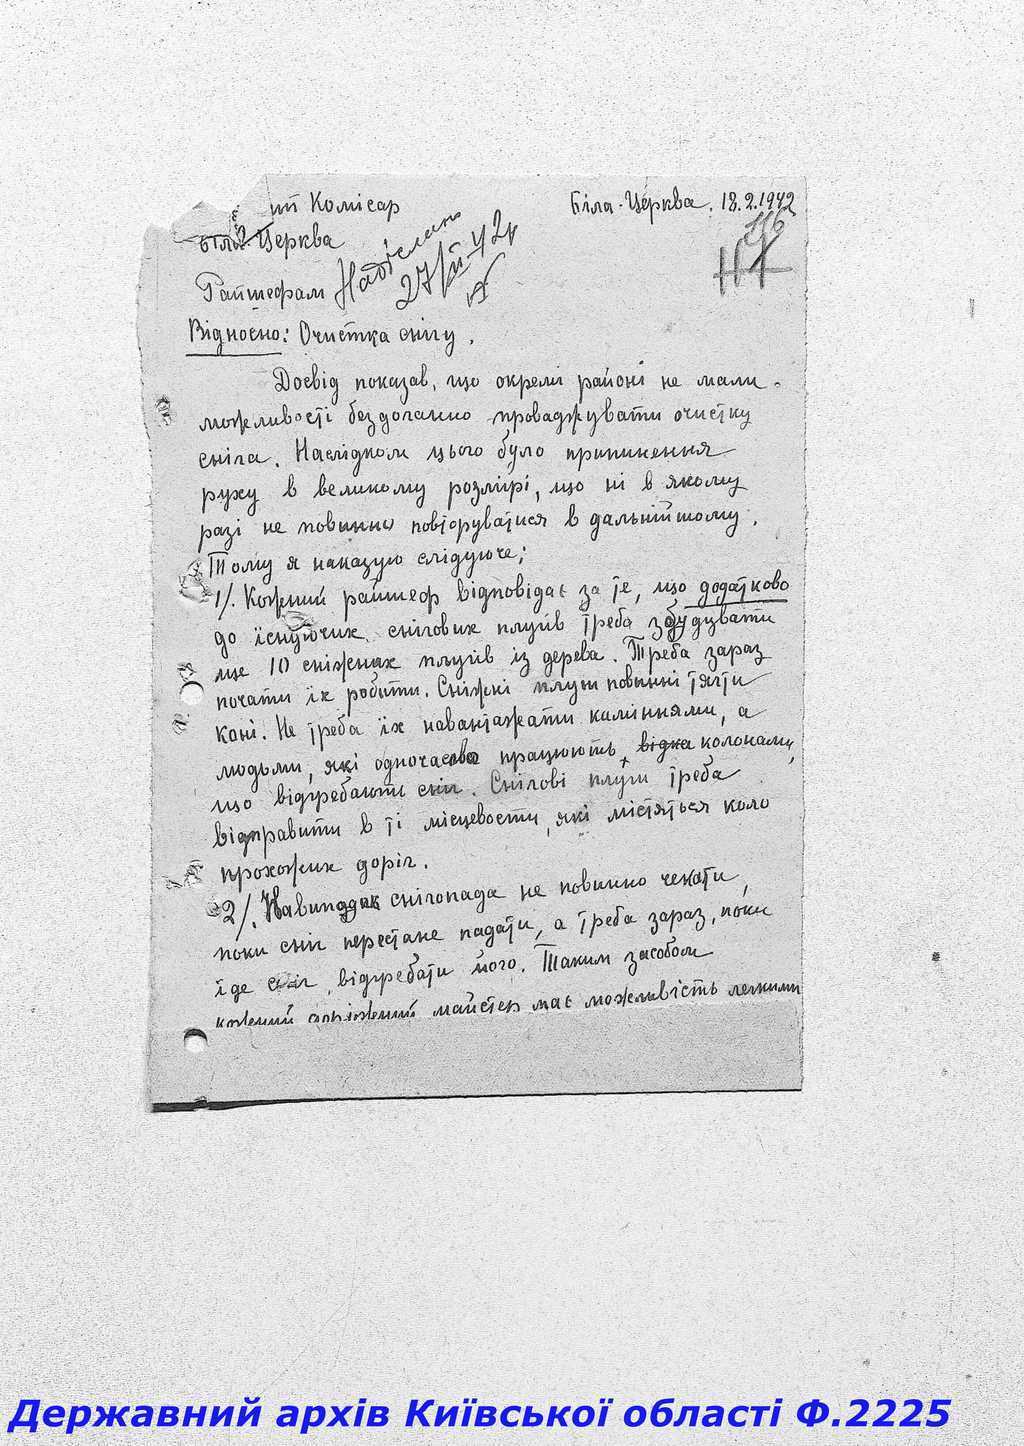 ий Комісар
Біла-Церква. 18.2.1942
Біла Церква
116
Надіслано
27/II 42
Райшефам
Відносно: Очистка снігу.
Досвід показав, що окремі районі не мали
можливості бездоганно проваджувати очистку
сніга. Наслідком цього було припинення
руху в великому розмірі, що ні в якому
разі не повинно повторуватися в дальнійшому.
Тому я наказую слідуюче:
1/. Кожний райшеф відповідає за те, що додатково
до їснуючих снігових плугів треба збудувати
ще 10 сніжних плугів із дерева. Треба зараз
почати їх робити. Сніжні плуги повинні тягти
коні. Не треба їх навантажати каміннями, а
людьми, які одночасово працюють, відка колонами,
що відгребають сніг. Снігові плуги треба
відправити в ті місцевости, які містяться коло
прохожих доріг.
2/. Навипадок снігопада не повинно чекати,
поки сніг перестане падати, а треба зараз, поки
їде сніг, відгребати його. Таким засобом
кожний дорожний майстер має можливість легкими
Державний архів Київської області Ф.2225